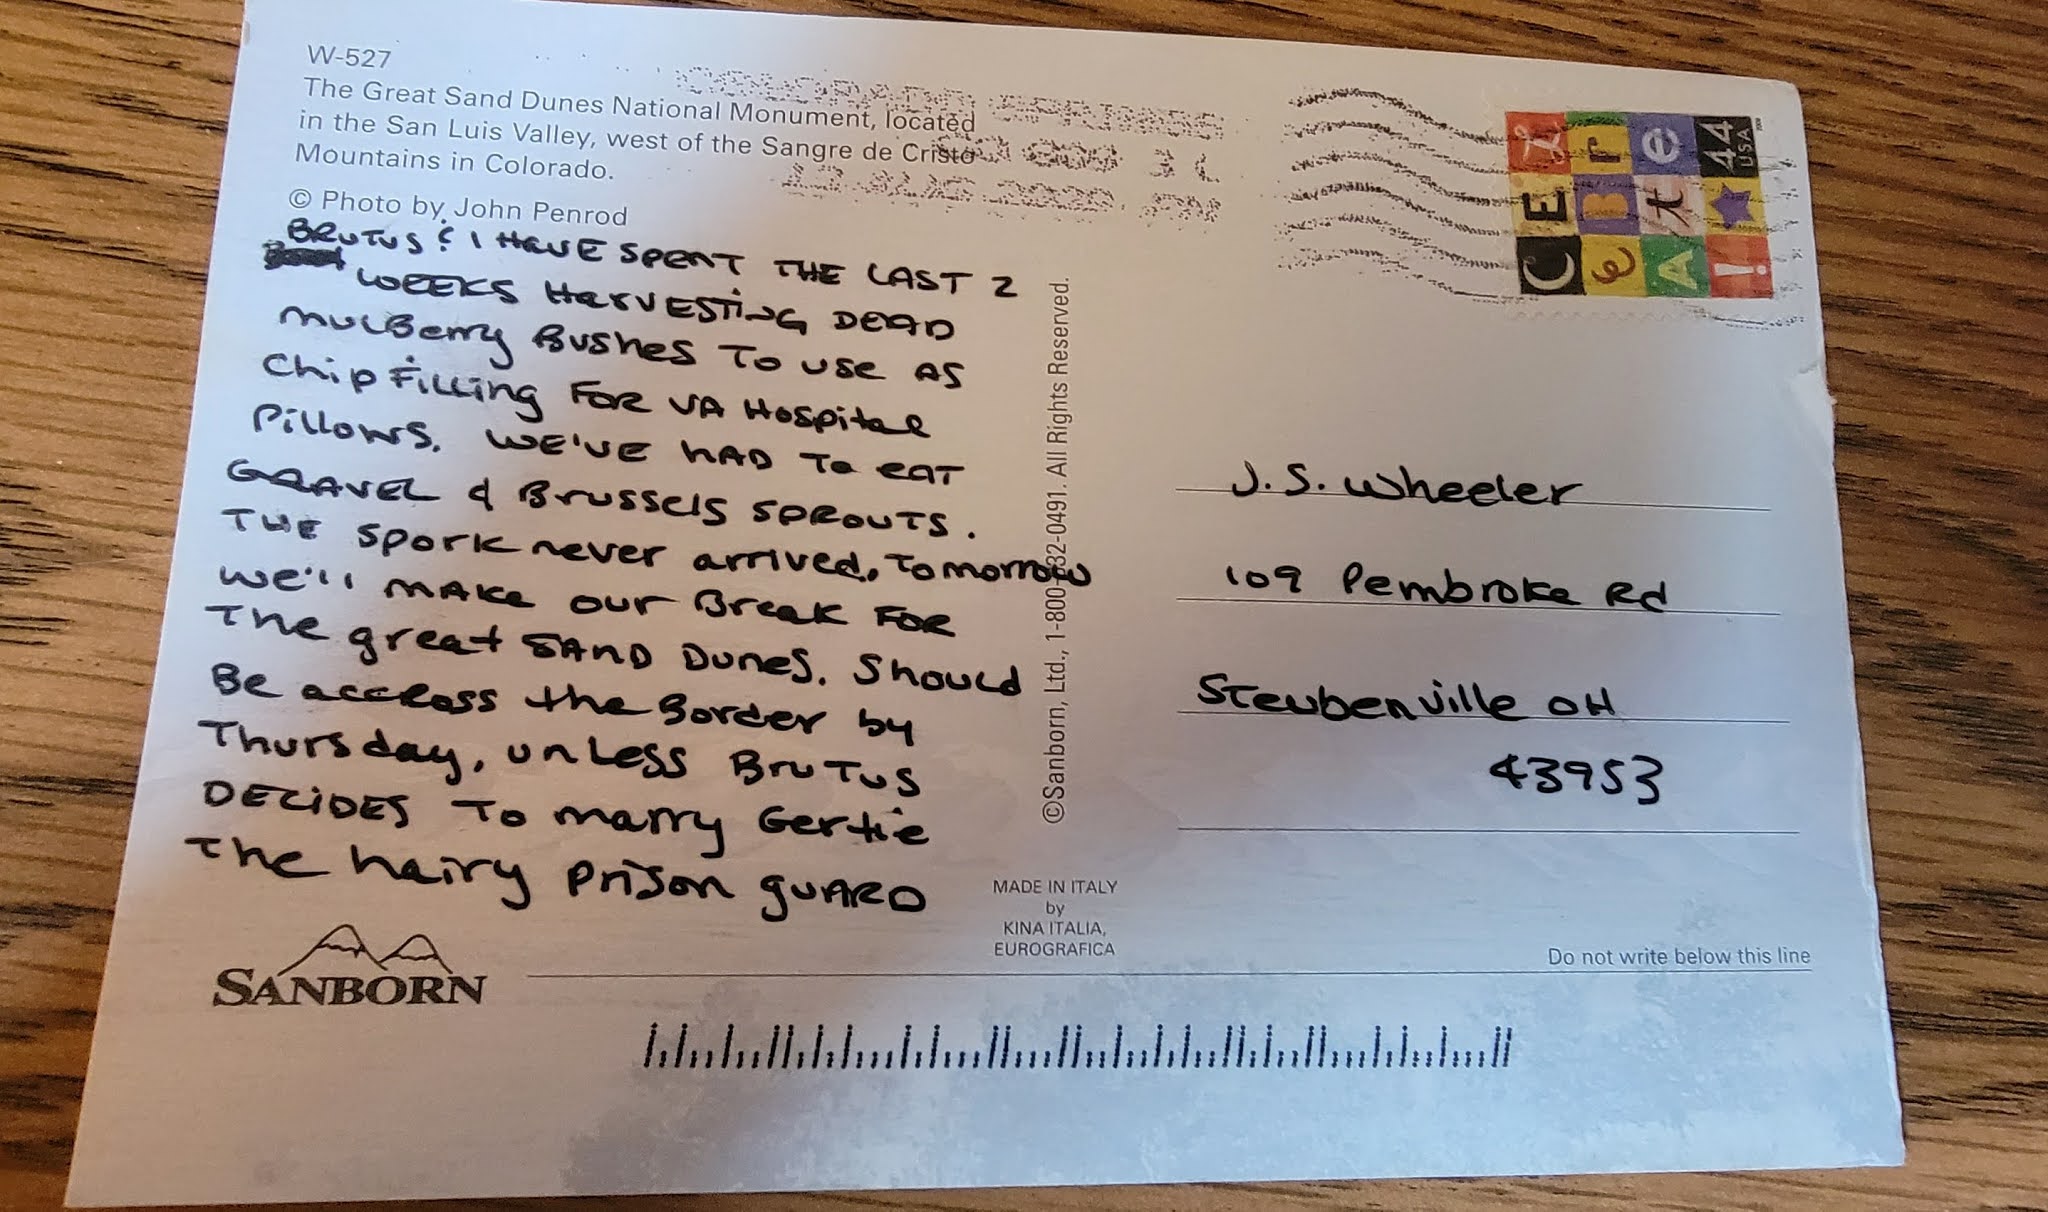 W-527
The Great Sand Dunes National Monument, located
in the San Luis Valley, west of the Sangre de Cristo
Mountains in Colorado.
© Photo by John Penrod
COLORADO SPRINGS
CO 809 3 L
13 AUG 2009 PM
CELEBRATE!
44
USA
BRUTUS & I HAVE SPENT THE LAST 2
WEEKS HARVESTING DEAD
MULBerry BUSHES TO USE AS
Chip FiLLing FOR VA Hospital
Pillows. WE'VE HAD To eAT
GRAVEL & Brussels SPROUTS.
THE SPORK never arrived. Tomorrow
We'll MAKe our Break FOR
The great SAND DUNES. Should
Be accross the Border by
Thursday, unLess BruTUS
DECIDES To marry Gertie
The hairy prison guARD
©Sanborn, Ltd., 1-800-532-0491. All Rights Reserved.
J.S. Wheeler
109 Pembroke Rd
Steubenville OH
43953
MADE IN ITALY
by
KINA ITALIA,
EUROGRAFICA
Do not write below this line
SANBORN